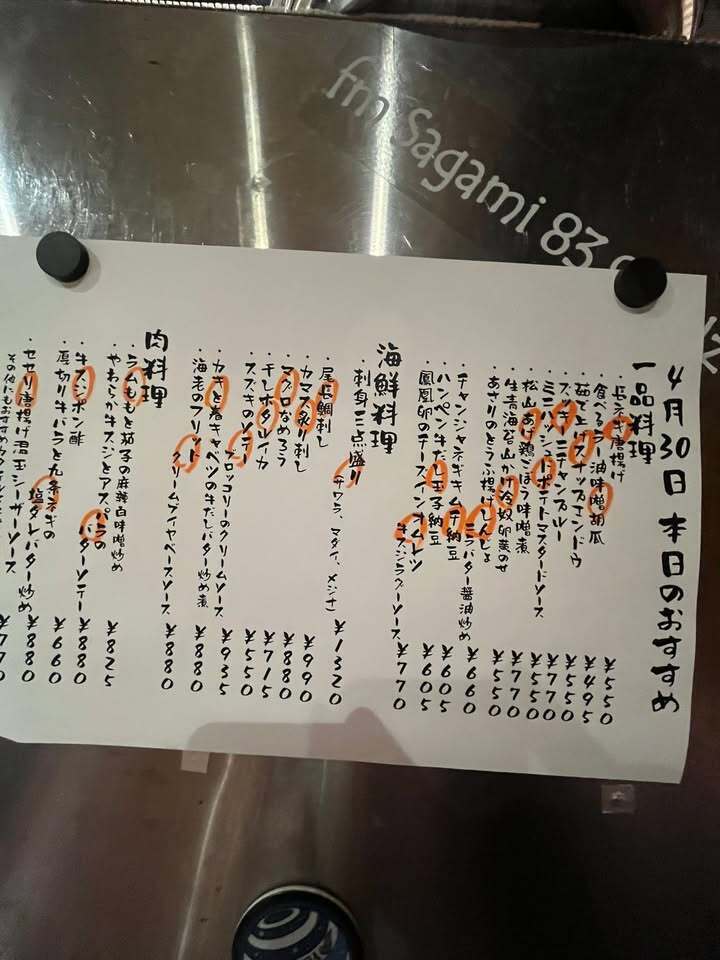 fm Sagami 83.
4月30日 本日のおすすめ
一品料理
・長ネギ唐揚げ ¥550
・食べるラー油味噌胡瓜 ¥495
・茹で上げスナップエンドウ ¥550
・ズッキーニチャンプルー ¥770
・ミニ ポテトマスタードソース ¥550
・松山あげ鶏ごぼう味噌煮 ¥770
・生青海苔山かけ冷奴卵黄のせ ¥550
・あさりのとうふ揚げしんじょ
ニラバター醤油炒め ¥660
・チャンジャネギキムチ納豆 ¥605
・ハンペン牛だし玉子納豆 ¥605
・鳳凰卵のチーズインオムレツ
牛スジラグーソース ¥770
海鮮料理
・刺身三点盛り (サワラ、マダイ、メジナ) ¥1320
・尾長鯛刺し ¥990
・カマス炙り刺し ¥880
・マグロなめろう ¥715
・干しホタルイカ ¥550
・スズキのソテー
ブロッコリーのクリームソース ¥935
・カキと春キャベツの牛だしバター炒め煮 ¥880
・海老のフリット
クリームブイヤベースソース ¥880
肉料理
・ラムももと茄子の麻辣白味噌炒め ¥825
・やわらか牛スジとアスパラの
バターソテー ¥880
・牛スジポン酢 ¥660
・厚切り牛バラと九条ネギの
塩ダレバター炒め ¥880
・セセリ唐揚げ温玉シーザーソース ¥770
その他にもおすすめ